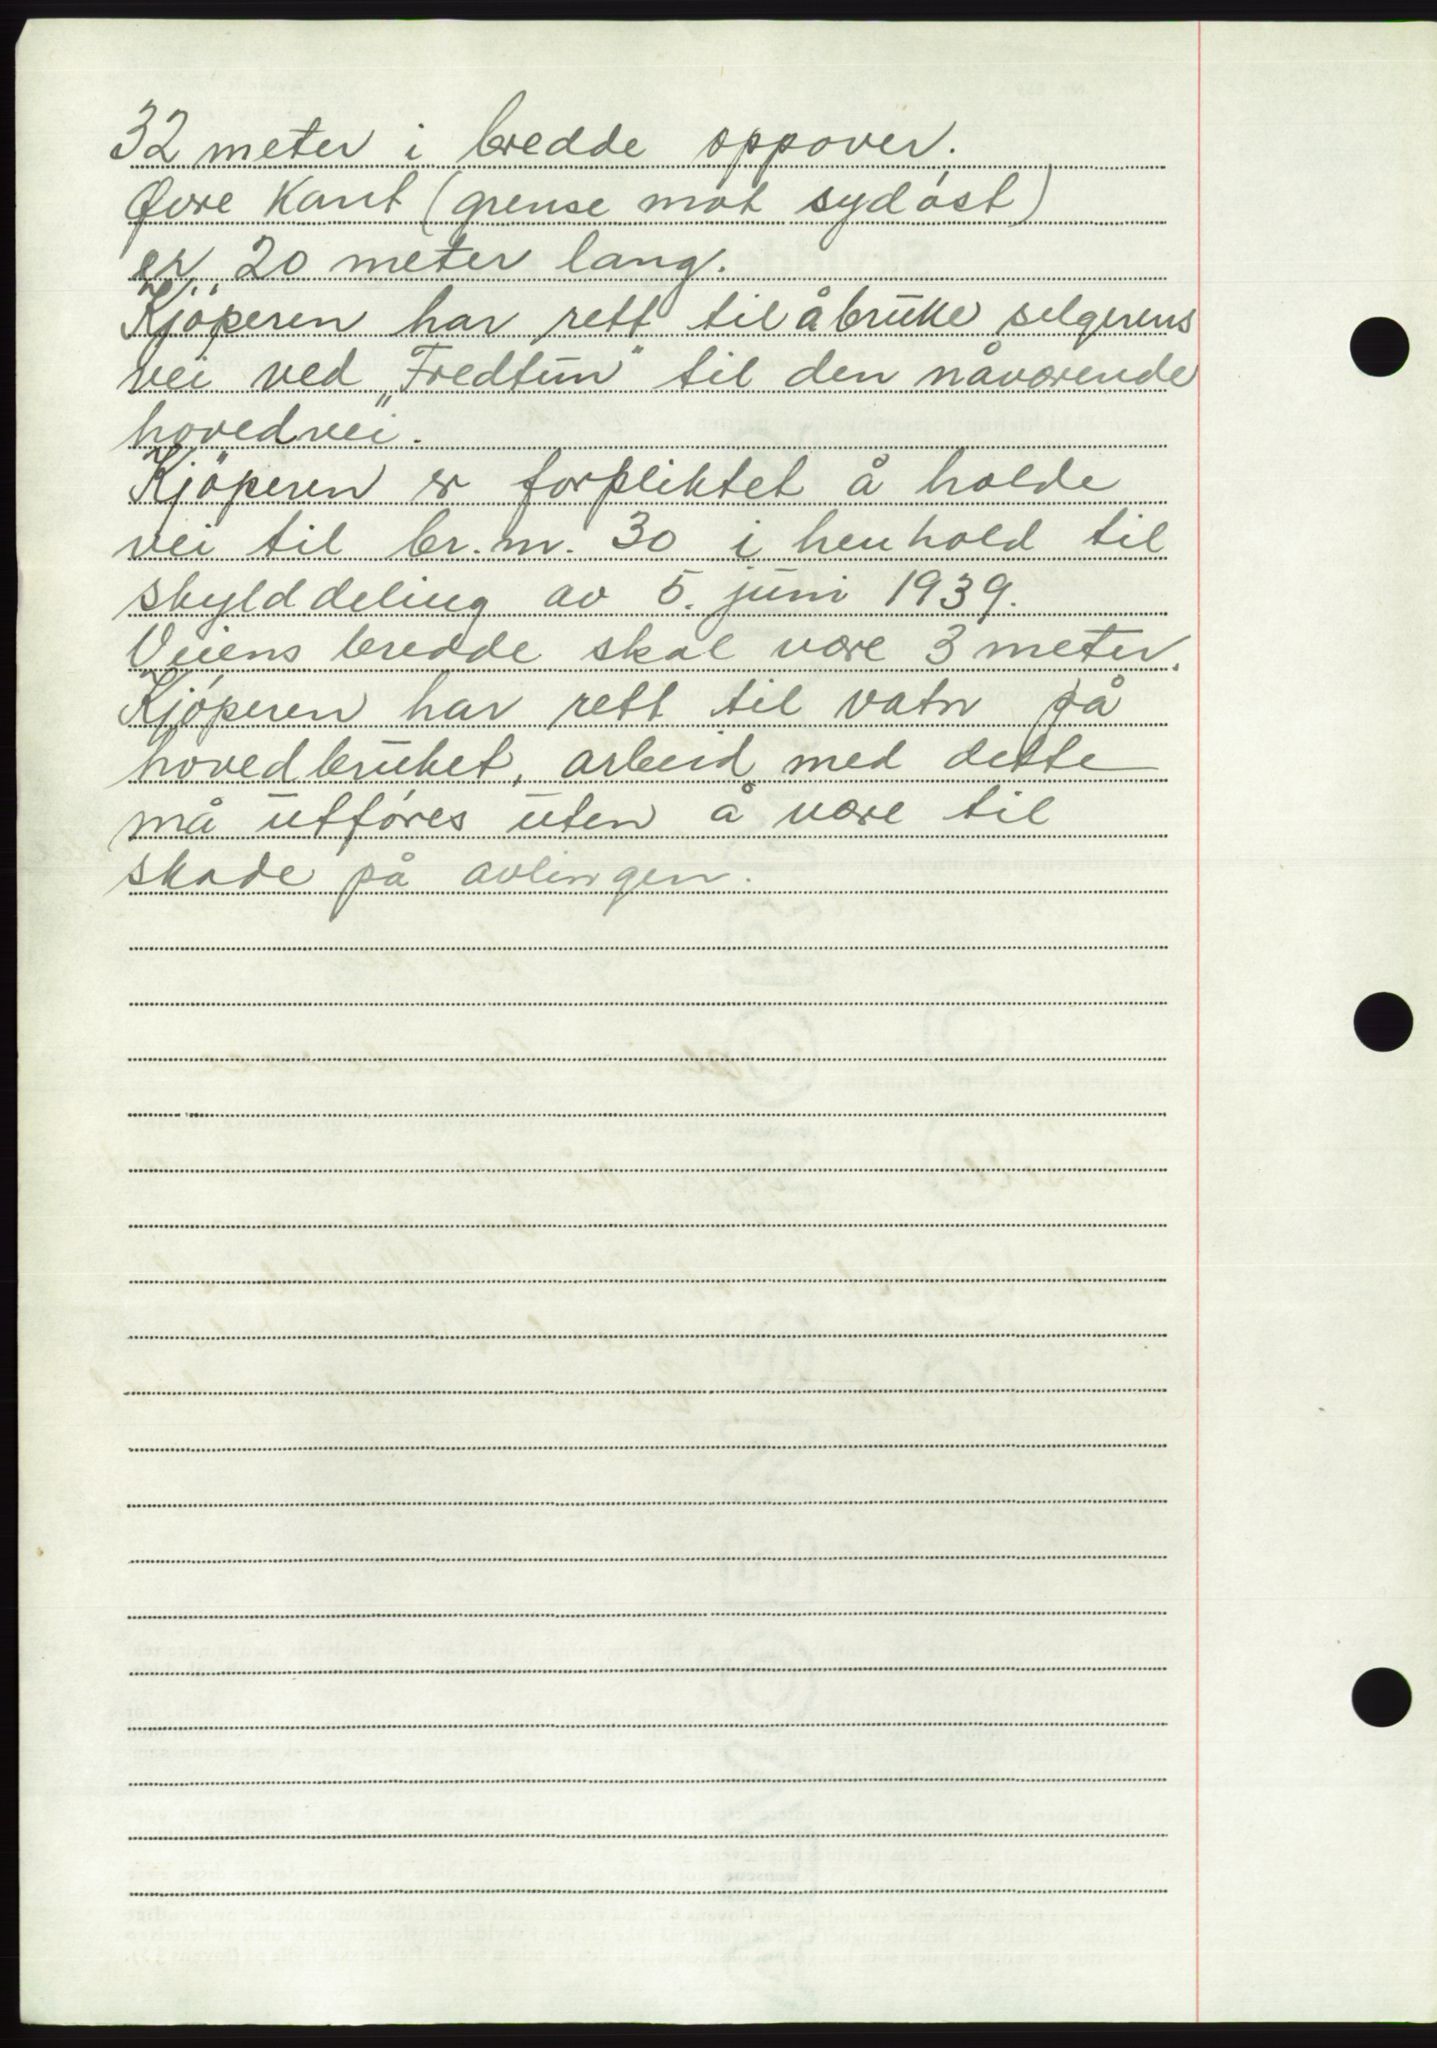 32 meter i bredde oppover.
Øvre kant (grense mot sydöst)
er 20 meter lang.
Kjöperen har rett til å bruke selgerens
vei ved „Fredtun" til den nåværende
hovedvei.
Kjöperen er forpliktet å holde
vei til br. nr. 30 i henhold til
skylddeling av 5. juni 1939.
Veiens bredde skal være 3 meter.
Kjöperen har rett til vatn på
hovedbruket, arbeid med dette
må utföres uten å være til
skade på avlingen.